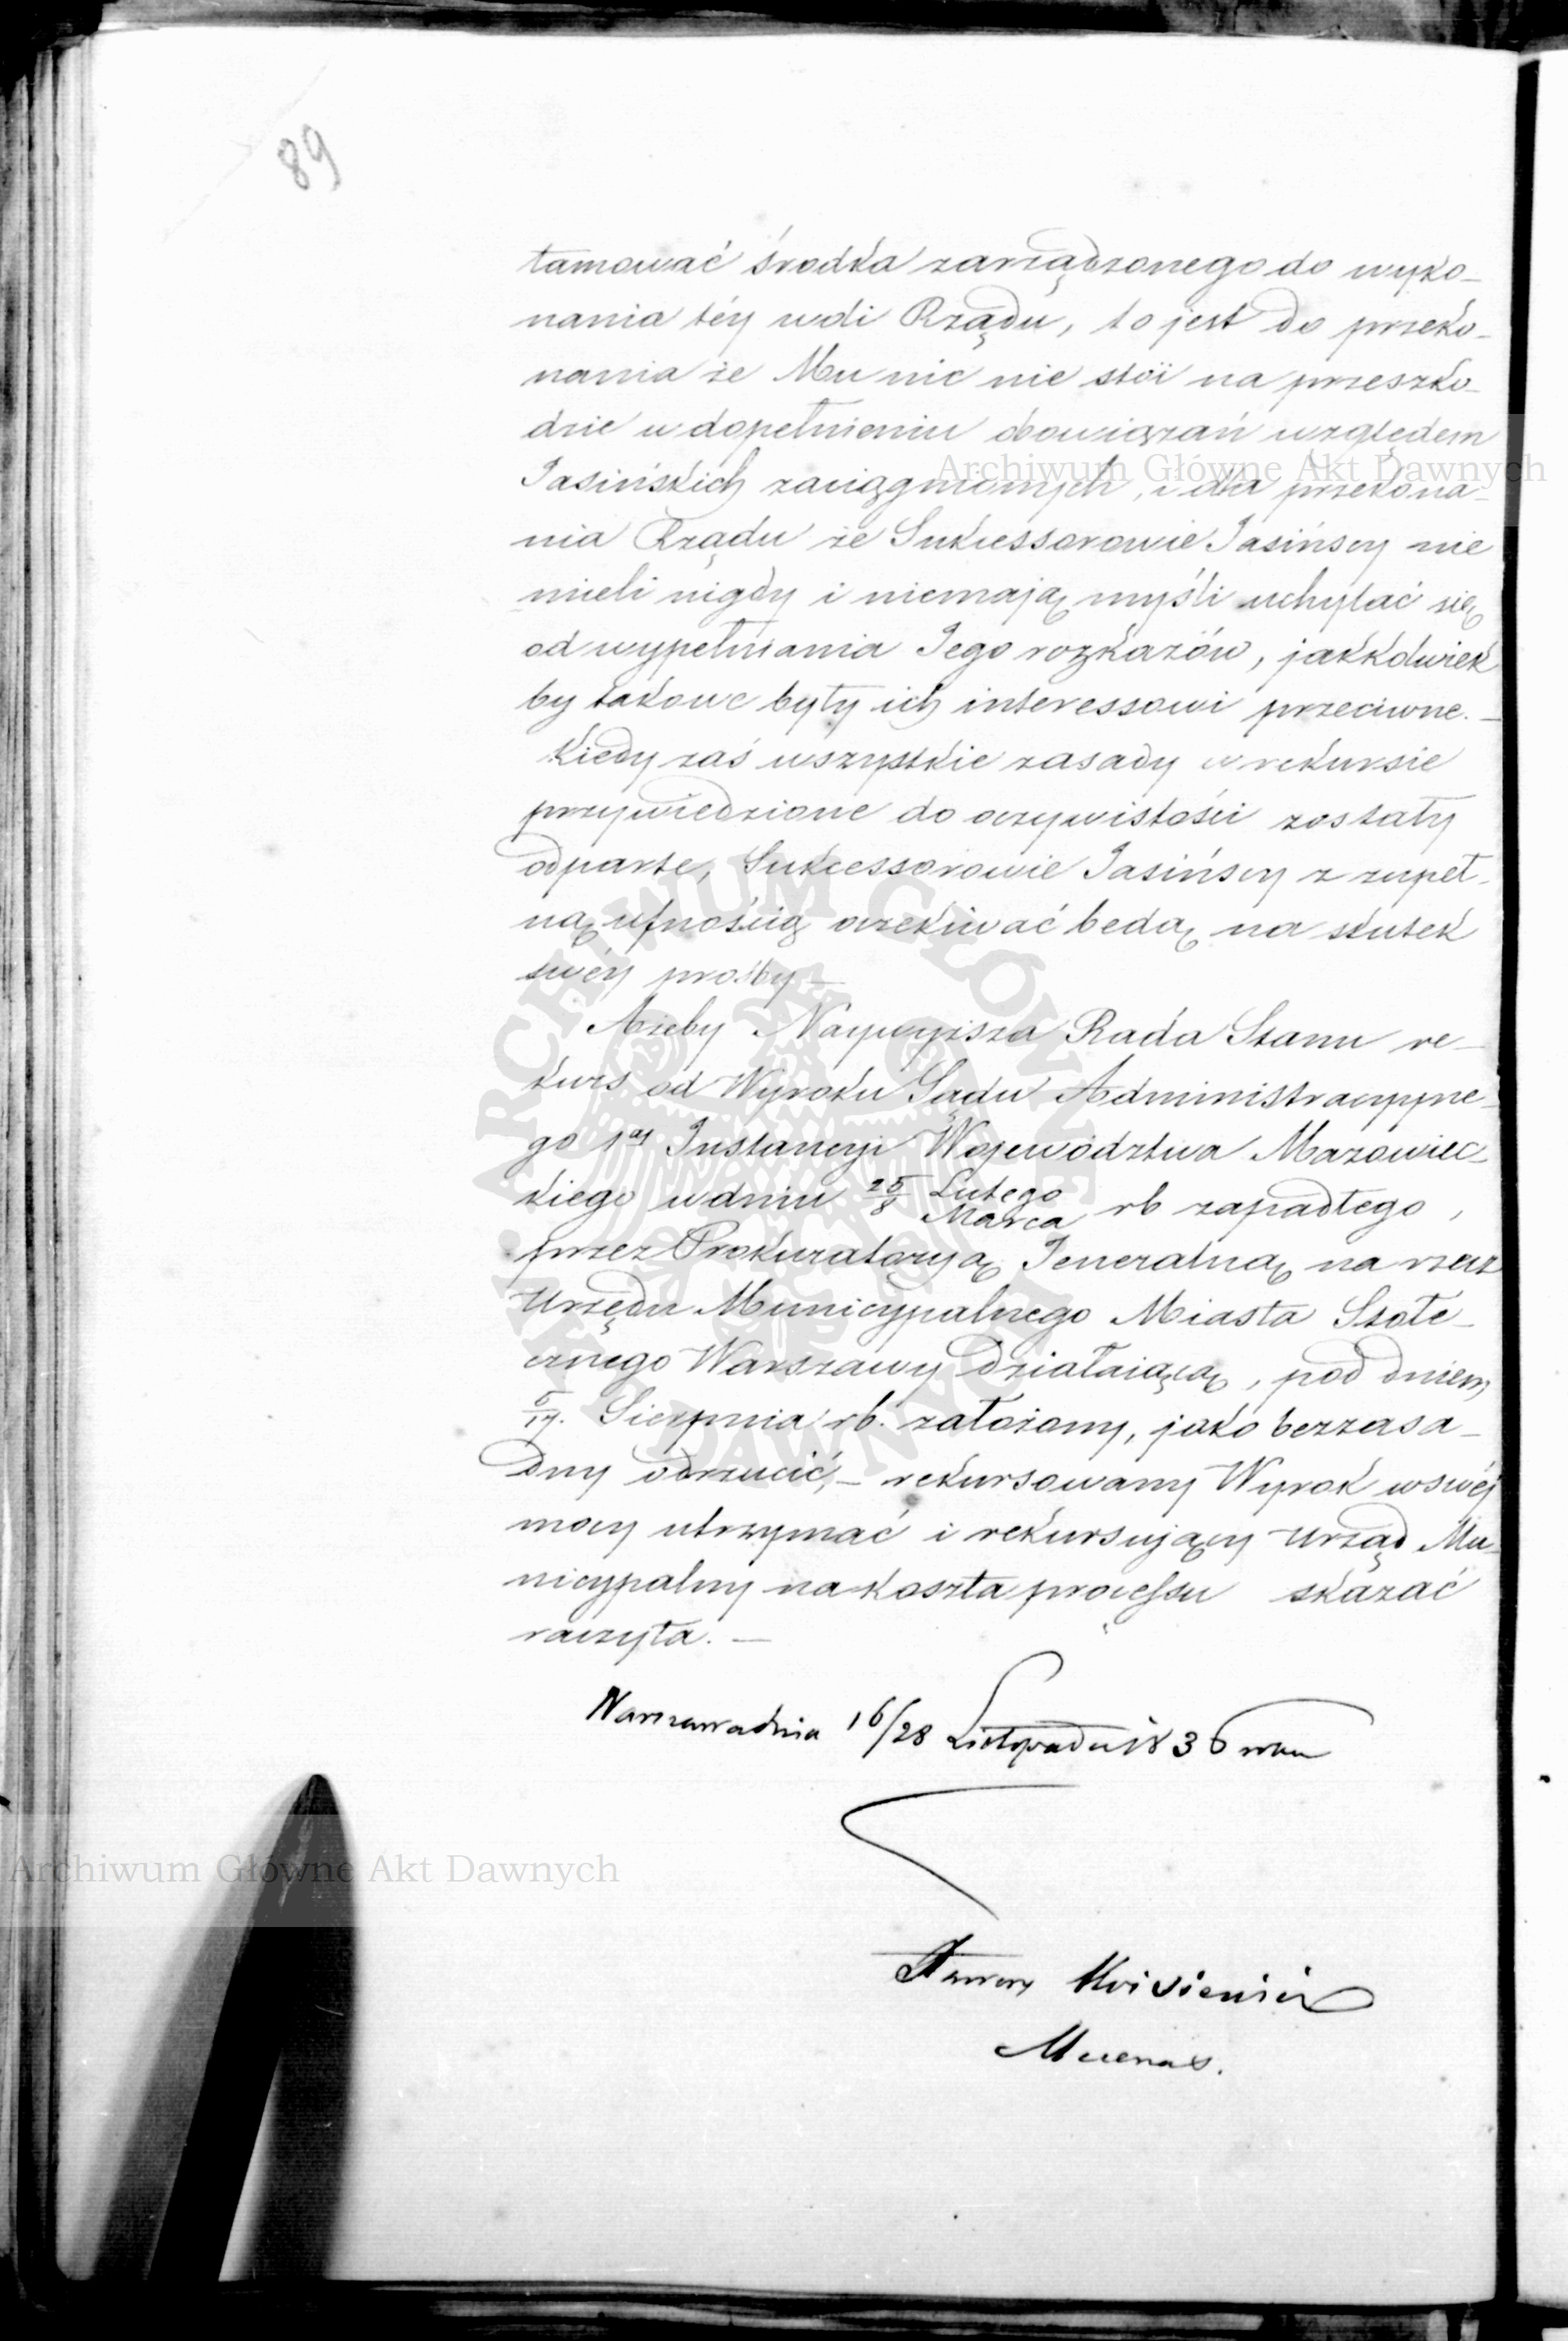 89
tamować środka zarządzonego do wyko-
nania téy woli Rządu, to jest do przeko-
nania że Mu nic nie stoi na przeszko-
dzie w dopełnieniu obowiązań względem
Jasińskich zaciągnionych, i dla przekona-
nia Rządu że Sukcessorowie Jasińscy nie
mieli nigdy i niemają myśli uchylać się
od wypełniania Jego rozkazów, jakkolwiek
by takowe były ich interessowi przeciwne. —
Kiedy zaś wszystkie zasady w rekursie
przywiedzione do oczywistości zostały
odparte, Sukcessorowie Jasińscy z zupeł-
ną ufnością oczekiwać będą na skutek
swéy prośby —
Ażeby Naywyższa Rada Stanu re-
kurs od Wyroku Sądu Administracyyne-
go 1éj Instancyi Województwa Mazowiec-
kiego w dniu 25/8 Lutego/Marca rb zapadłego,
przez Prokuratoryą Jeneralną na rzecz
Urzędu Municypalnego Miasta Stołe-
cznego Warszawy działaiącą, pod dniem
5/17. Sierpnia rb. założony, jako bezzasa-
dny odrzucić, — rekursowany Wyrok w swéj
mocy utrzymać i rekursujący Urząd Mu-
nicypalny na koszta processu skazać
raczyła. —
Warszawa dnia 16/28 Listopada 1836 roku
Mecenas.
Archiwum Główne Akt Dawnych
Archiwum Główne Akt Dawnych
ARCHIWUM GŁÓWNE AKT DAWNYCH